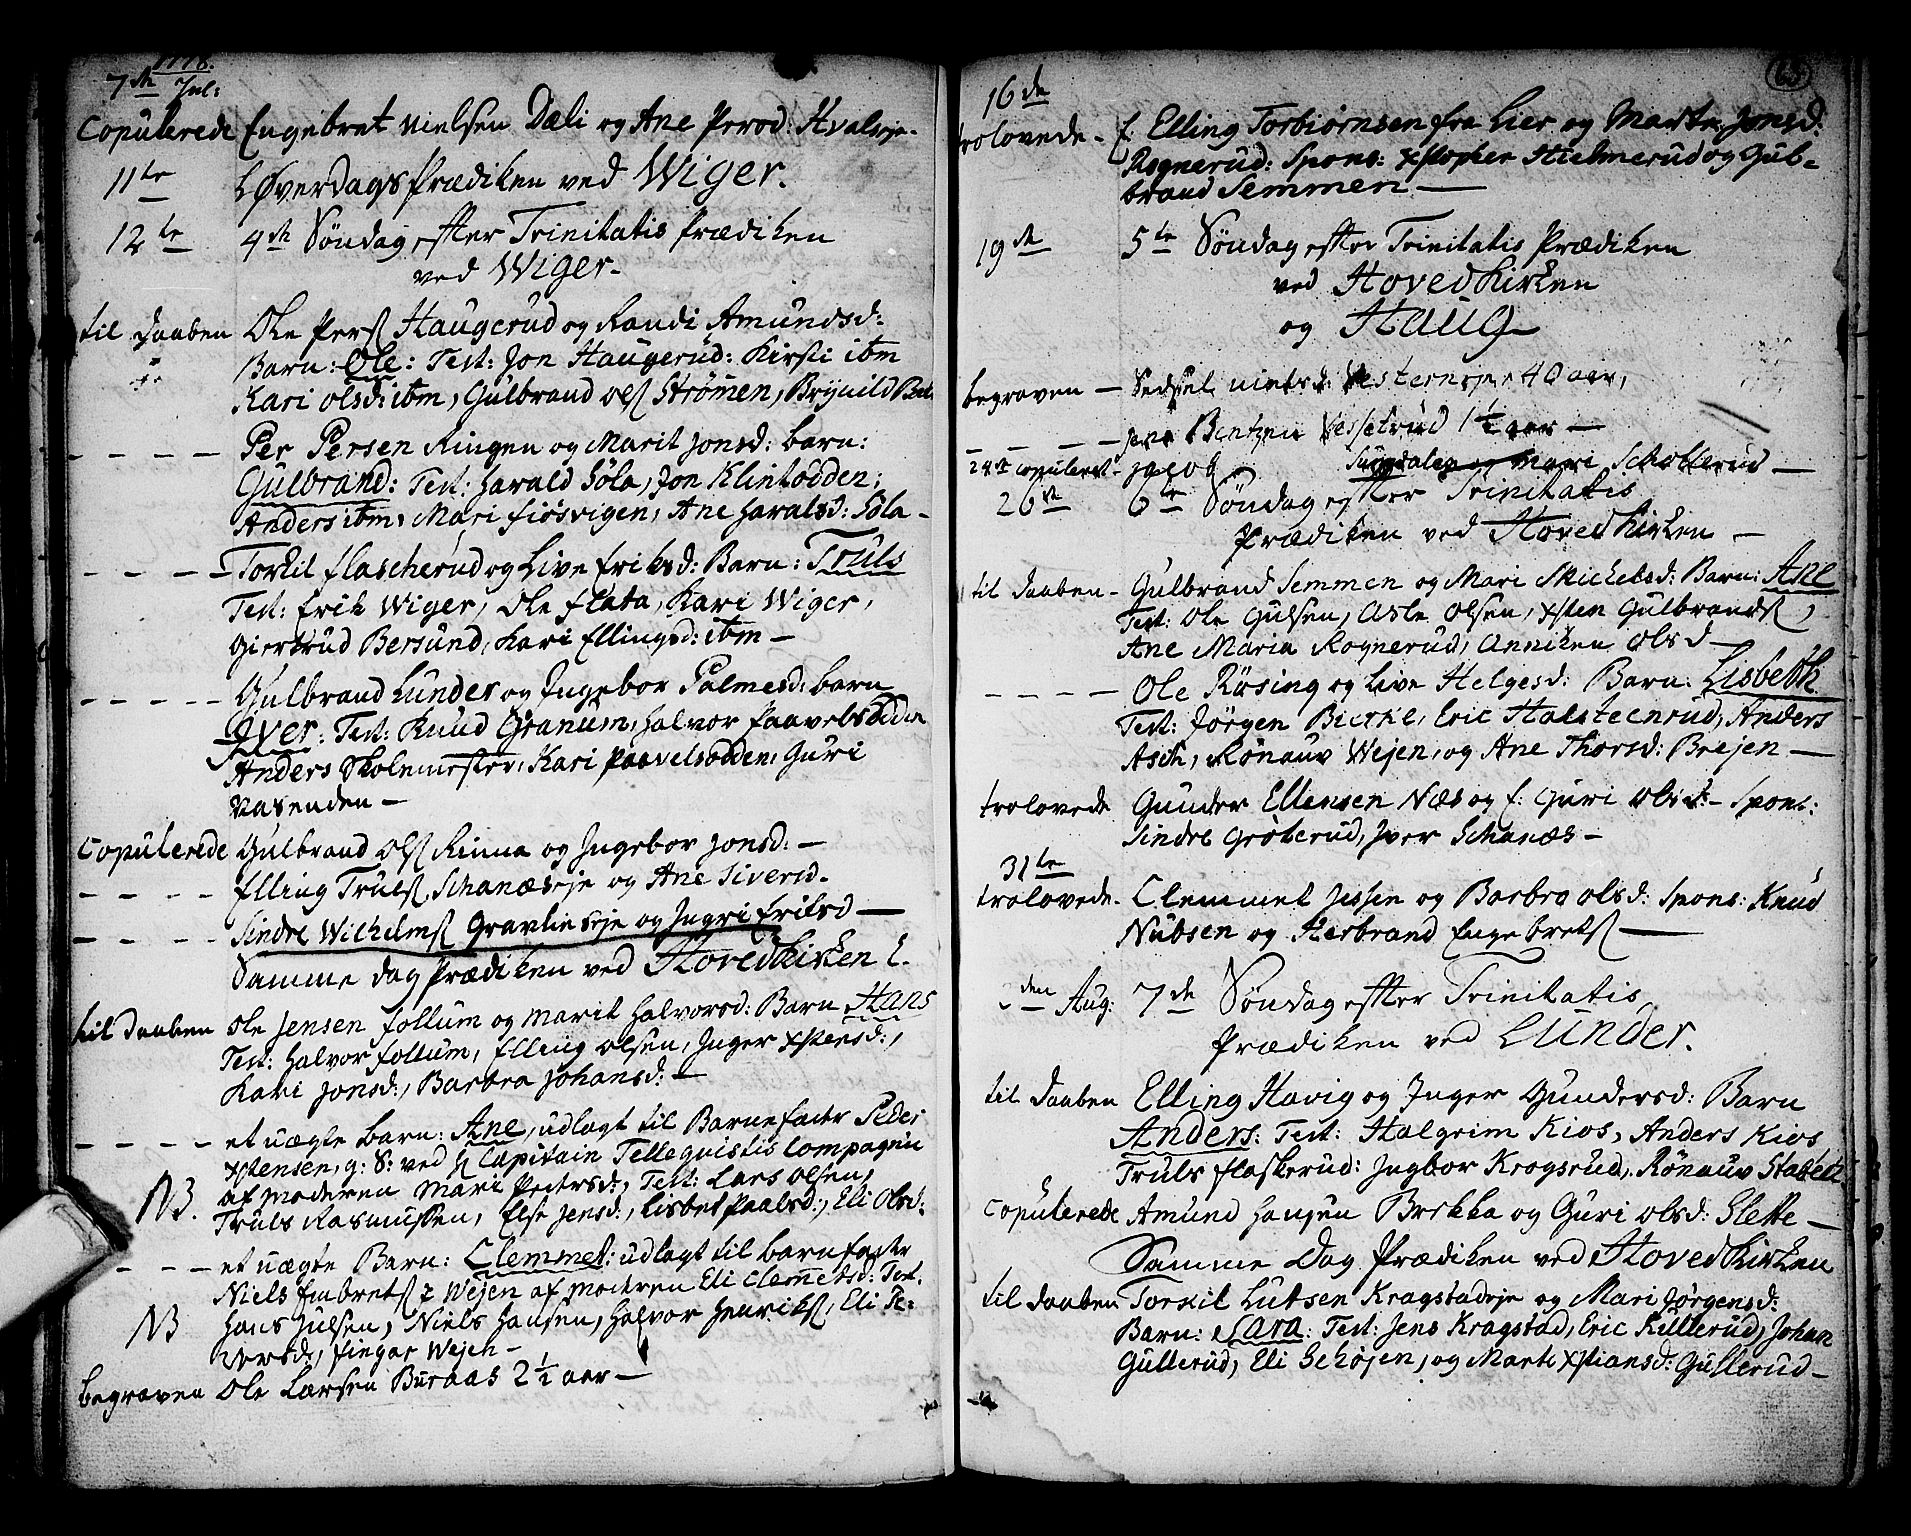 1778.
7de Jul:
Copulerede Engebret Nielsen Dæli og Ane Persd: Hvalseje-
11te Løverdags Prædiken ved Wiger.
12te 4de Søndag efter Trinitatis Prædiken
ved Wiger-
til Daaben Ole Pers Haugerud og Randi Amundsd:
Barn: Ole: Test: Jon Haugerud: Kirsti ibm
Kari olsd: ibm, Gulbrand ols Strømen, Brynild
- - - - Per Persen Ringen og Marit Jonsd: barn:
Gulbrand: Test: Harald Søla, Jon Klintodden;
Anders ibm, Mari Fiøsvigen, Ane Haralsd: Søla -
- - - - Torkil Flascherud og Live Eriksd: Barn: Truls
Test: Erik Wiger, Ole Flata, Kari Wiger,
Giertrud Bersund, Kari Ellingsd: ibm -
- - - - Gulbrand Lunder og Ingebor Palmesd: barn
Iver: Test: Knud Granum, Halvor Paavelsodden
Anders Skolemester, Kari Paavelsodden, Guri
Vasenden -
Copulerede Gulbrand Ols Rinna og Ingebor Jonsd: -
- - - - Elling Truls Schanæseje og Ane Siversd-
- - - - Sindre Wilhelms Gravlieseje og Ingri Eriksd -
Samme Dag Prædiken ved Hoved Kirken
til Daaben Ole Jensen Follum og Marit Halvorsd: Barn Hans
Test: Halvor Follum, Elling Olsen, Inger Xstensd:,
Kari Jonsd:, Barbra Johansd: -
- - - - et uægte barn: Ane, udlagt til Barnefader Peder
Xstensen, g: S: ved Capitain Tellequistis Compagnie
NB. af moderen Mari Pedersd:, Test: Lars olsen,
Truls Rasmussen, Else Jensd:, Lisbet Paalsd:, Eli Olsd:
- - - et uægte Barn: Clemmet: udlagt til barnfader
Niels Embrets Wejen af moderen Eli Clemmetsd: Test.
NB Hans Julsen, Niels Hansen, Halvor Henriks, Eli Pe:
dersd:, Fingar Wejen -
begraven Ole Larsen Buraas 2 1/2 aar -
65
16de
trolovede - E. Elling Torbiørnsen fra Lier og Marte Jonsd:
Rognerud: Spons: Xstopher Hielmerud og Gul-
brand Semmen -
19de 5te Søndag efter Trinitatis Prædiken
ved Hoved Kirken
og Haug
begraven - Sedsel Nielsd: Vesterneje 40 aar,
- - - Bentzen Vessetrud 1 1/2 aar -
24de copuleret Jacob Sungdalen og Mari Schollerud -
26de 6te Søndag efter Trinitatis
Prædiken ved Hoved Kirken -
til Daaben - Gulbrand Semmen og Mari Michelsd: Barn: Ane
Test: Ole Gulsen, Asle Olsen, Xsten Gulbrands,
Ane Maria Rognerud, Anniken Olsd -
- - - - Ole Rising og Live Helgesd: Barn: Lisbeth
Test: Jørgen Bierke, Eric Halsteenrud, Anders
Asch, Rønauv Wejen, og Ane Thorsd: Brejen -
trolovede Gunder Ellensen Næs og E: Guri Olsd - Spons:
Sindre Grøterud, Iver Schanæs -
31te
trolovede - Clemmet Jessen og Barbra olsd: Spons: Knud
Nubsen og Herbrand Engebrets -
den Aug: 7de Søndag efter Trinitatis
Prædiken ved Lunder.
til Daaben Elling Havig og Inger Gundersd: Barn
Anders: Test: Halgrim Kios, Anders Kios
Truls Flaskerud: Ingbor Kragsrud, Rønauv
Copulerede Amund Hansen Brekka og Guri Olsd: Slette -
Samme Dag Prædiken ved Hoved Kirken
til Daaben Torkil Lutsen Kragstadeje og Mari Jørgensd:
Barn: Sara: Test: Jens Kragstad, Eric Killerud, Johan
Gullerud, Eli Schøjen, og Marte Xstiansd: Gullerud -